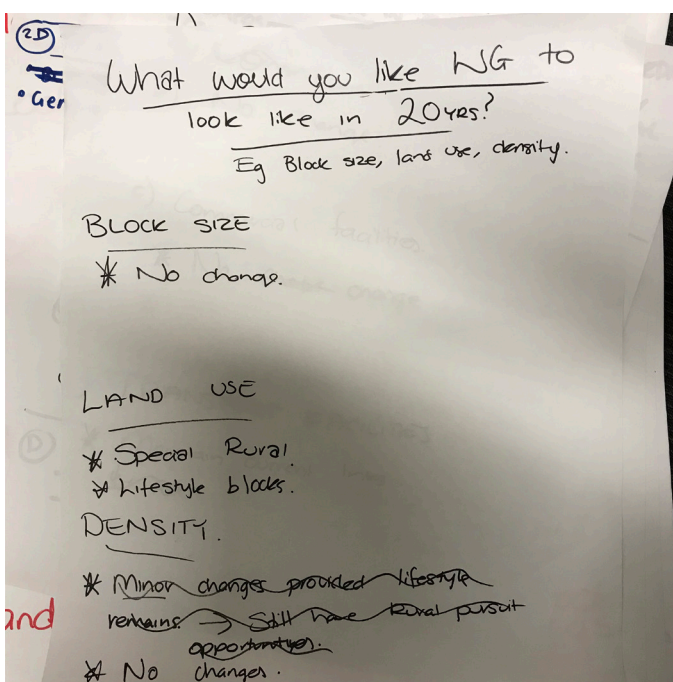 2D
• Ger
What would you like NG to
look like in 20yrs?
Eg Block size, land use, density.
BLOCK SIZE
* No change.
LAND USE
* Special Rural.
* Lifestyle blocks.
DENSITY.
* Minor changes provided lifestyle
remains → Still have Rural pursuit
opportunities.
* No changes.
and